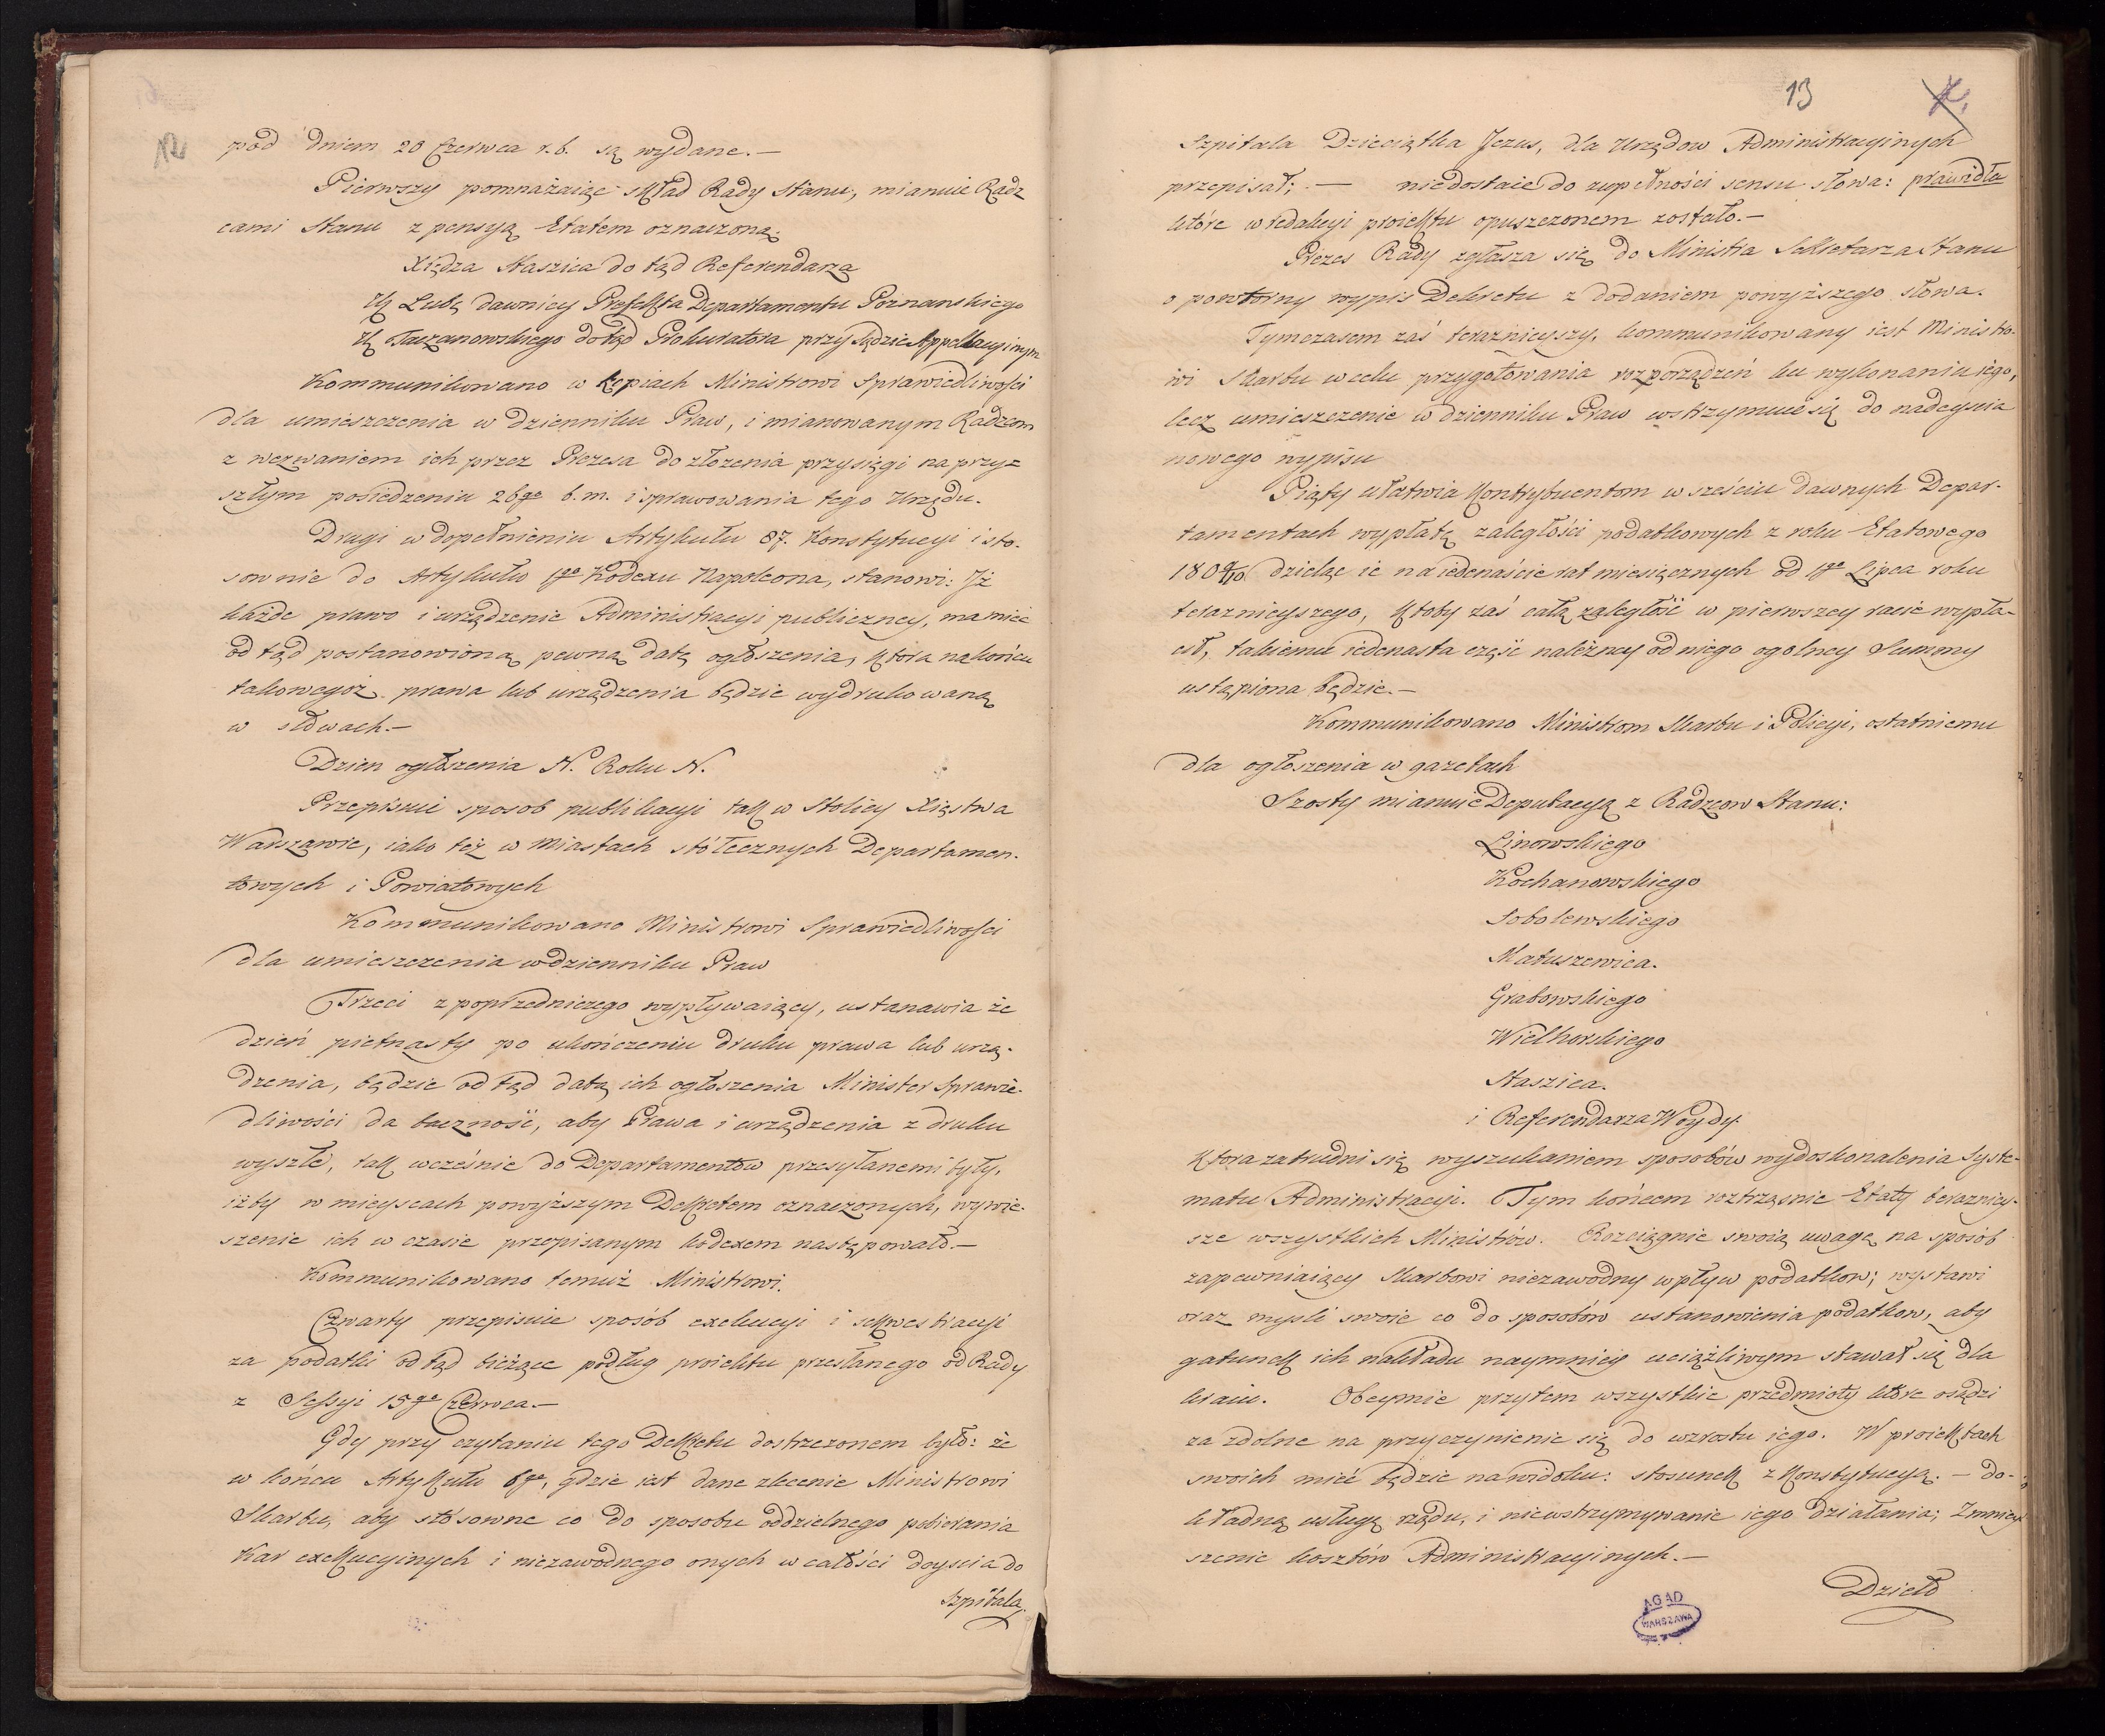 12
pod dniem 20 Czerwca r.b. są wydane.—
Pierwszy pomnażaiąc skład Rady Stanu, mianuie Radz
cami Stanu z pensyą Etatem oznaczoną.
Xiędza Staszica do tąd Referendarza
Lubę dawniey Prefekta Departamentu Poznanskiego
Taczanowskiego dotąd Prokuratora przy Sądzie Appellacyinym
Kommunikowano w kopiach Ministrowi Sprawiedliwości
dla umieszczenia w dzienniku Praw, i mianowanym Radzcom
z wezwaniem ich przez Prezesa do złożenia przysięgi na przy=
szłym posiedzeniu 26go b.m. i sprawowania tego Urzędu.
Drugi w dopełnieniu Artykułu 87. Konstytucyi i sto-
sownie do Artykułu 1go Kodexu Napoleona, stanowi: Iż
każde prawo i urządzenie Administracyi publiczney, ma mieć
od tąd postanowioną pewną datę ogłoszenia, która na końcu
takowegoż prawa lub urządzenia będzie wydrukowaną
w słowach.—
Dzien ogłoszenia N. Roku N.
Przepisuie sposob publikacyi tak w Stolicy Xięstwa
Warszawie, iako też w Miastach stółecznych Departamen-
towych i Powiatowych
Kommunikowano Ministrowi Sprawiedliwości
dla umieszczenia w dzienniku Praw
Trzeci z poprzedniczego wypływaiący, ustanawia że
dzień pietnasty po ukończeniu druku prawa lub urzą-
dzenia, będzie od tąd datą ich ogłoszenia Minister Sprawie-
dliwości da baczność, aby Prawa i urządzenia z druku
wyszłe, tak wcześnie do Departamentów przesyłanemi były,
iżby w mieyscach powyższym Dekretem oznaczonych, wywie-
szenie ich w czasie przepisanym kodexem następowało.—
Kommunikowano temuż Ministrowi.
Czwarty przepisuie sposób exekucyi i sekwestracyi
za podatki od tąd bieżące podług proiektu przesłanego od Rady
z Sessyi 15go Czerwca.—
Gdy przy czytaniu tego Dekretu dostrzezonem było: że
w końcu Artykułu 6go, gdzie iest dane zlecenie Ministrowi
Skarbu, aby stósowne co do sposobu oddzielnego pobierania
Kar exekucyinych i niezawodnego onych w całości doyscia do
Szpitala
13
Szpitala Dzieciątka Jezus, dla Urzędow Administracyinych
przepisał; — niedostaie do zupełności sensu słowa: prawidła
które w redakcyi proiektu opuszczonem zostało.—
Prezes Rady zgłasza się do Ministra Sekretarza Stanu
o powtórny wypis Dekretu z dodaniem powyższego słowa.
Tymczasem zaś teraznieyszy, kommunikowany iest Ministro-
wi Skarbu w celu przygotowania rozporządzeń ku wykonaniu iego,
lecz umieszczenie w dzienniku Praw wstrzymuie się do nadeyscia
nowego wypisu
Piąty ułatwia Kontrybuentom w sześciu dawnych Depar-
tamentach wypłatę zaległości podatkowych z roku Etatowego
1809/10 dzieląc ie na iedenaście rat miesięcznych od 1go Lipca roku
teraznieyszego, ktoby zaś całą zaległość w pierwszey racie wypła-
cił, takiemu iedenasta część należney od niego ogolney Summy
ustąpiona będzie.—
Kommunikowano Ministrom Skarbu i Policyi, ostatniemu
dla ogłoszenia w gazetach
Szosty mianuie Deputacyą z Radzcow Stanu:
Linowskiego
Kochanowskiego
Sobolewskiego
Matuszewica.
Grabowskiego
Wielhorskiego
Staszica.
i Referendarza Woydy.
Ktora zatrudni się wyszukaniem sposobów wydoskonalenia Syste-
matu Administracyi. Tym końcem roztrząśnie Etaty terazniey-
sze wszystkich Ministrów. Rozciągnie swoią uwagę na sposób
zapewniaiący Skarbowi niezawodny wpływ podatkow; wystawi
oraz myśli swoie co do sposobów ustanowienia podatkow, aby
gatunek ich nakładu naymniey uciążliwym stawał się dla
kraiu. Obeymie przytem wszystkie przedmioty które osądzi
za zdolne na przyczynienie się do wzrostu iego. W proiektach
swoich mieć będzie na widoku: stosunek z Konstytucyą.— do-
kładną usługę rządu, i niewstrzymywanie iego działania; Zmniey-
szenie kosztów Administracyinych.—
Dzieło
AGAD
WARSZAWA